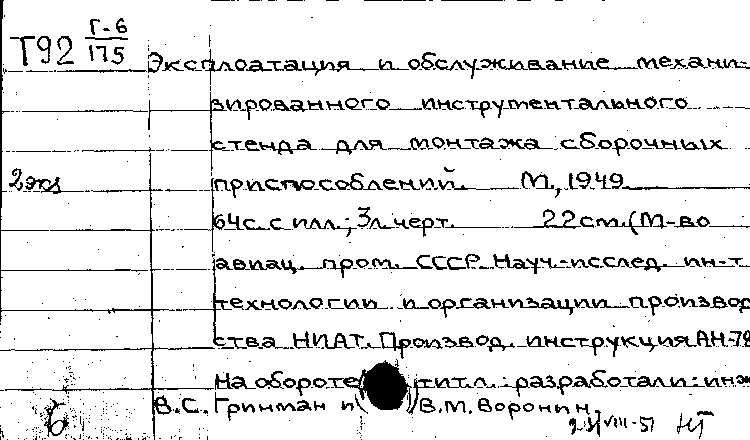 Т92 Г-6/175
Эксплоатация и обслуживание механи-
зированного инструментального
стенда для монтажа сборочных
2 экз приспособлений. М., 1949
64с. с илл.; 3л. черт. 22 см. (М-во
авиац. пром. СССР. Науч.-исслед. ин-т
технологии и организации производ
ства НИАТ. Производ. инструкция АН-79
На обороте тит. л.: разработали: инж
В.С. Гринман и В.М. Воронин.
б VIII-51 НТ